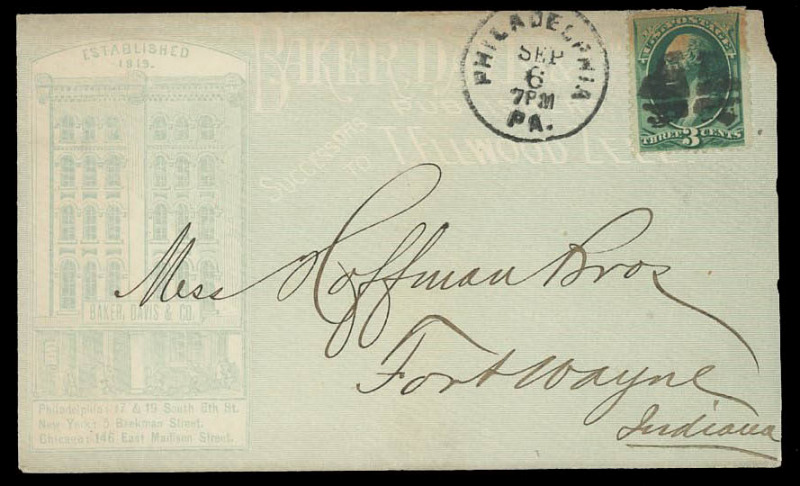 ESTABLISHED
1819.
BAKER, DAVIS & CO.
Philadelphia: 17 & 19 South 6th St.
New York: 5 Beekman Street.
Chicago: 146 East Madison Street.
BAKER D
SUCCESSORS
TO
PHILADELPHIA
SEP
6
7PM
PA.
U.S. POSTAGE
THREE 3 CENTS
Mess Hoffman Bros
Fort Wayne
Indiana